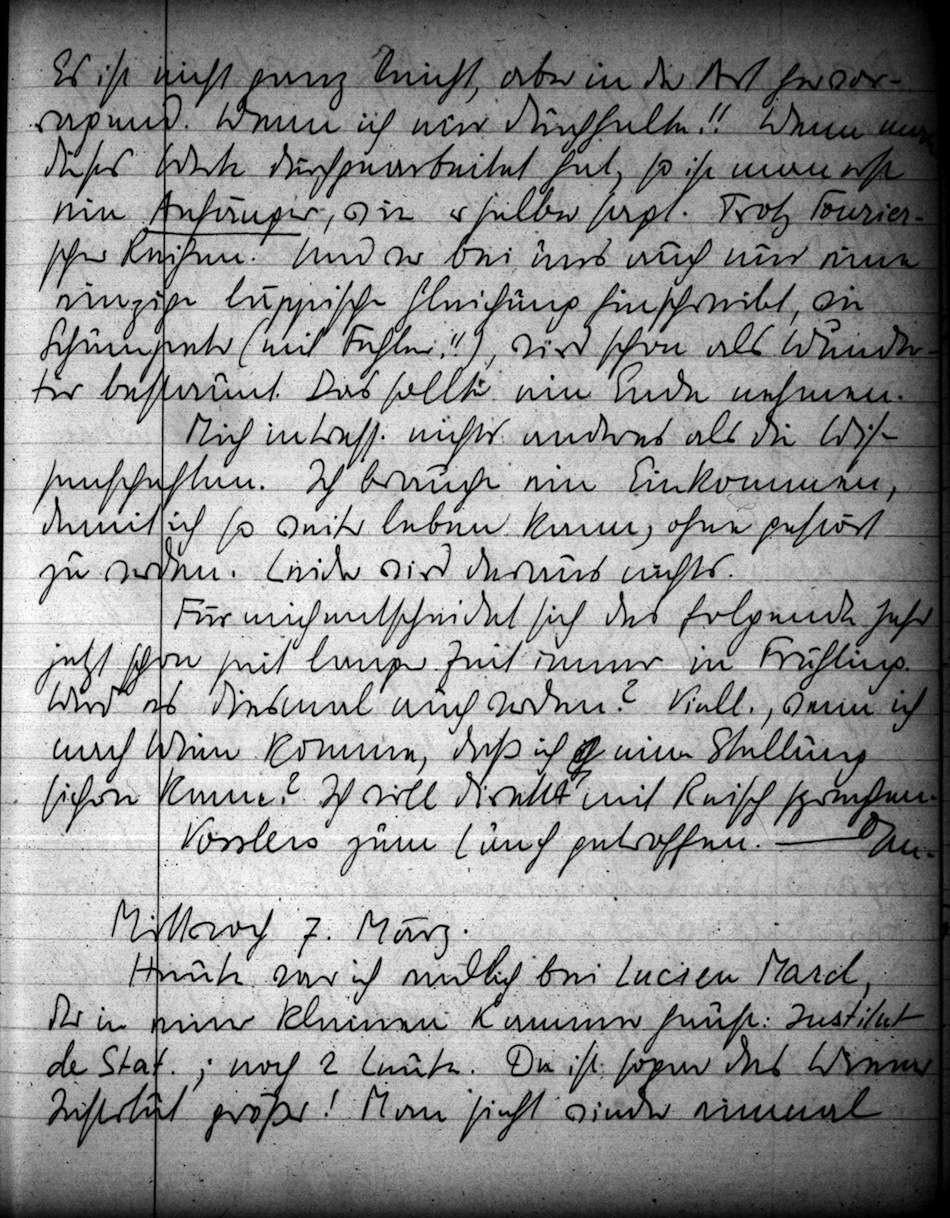 Es ist nicht ganz leicht, aber in der Art hervor-
ragend. Wenn ich nur durchhalte!! Wenn man
dieses Werk durchgearbeitet hat, so ist man erst
ein Anfänger, wie er selber sagt. Trotz Fourier-
scher Reihen. Und wer bei uns auch nur eine
einzige läppische Gleichung hinschreibt, wie
Schumpeter (mit Fehler!!), wird schon als Wunder-
tier bestaunt. Das sollte ein Ende nehmen.
Mich intress. nichts anderes als die Wis-
senschaften. Ich brauche ein Einkommen,
damit ich so weiter leben kann, ohne gestört
zu werden. Leider wird daraus nichts.
Für mich entscheidet sich das folgende Jahr
jetzt schon seit langer Zeit immer im Frühling.
Wird es diesmal auch werden? Viell., wenn ich
nach Wien komme, daß ich eine Stellung
sichern kann? Ich will direkt mit Reisch sprechen.
Vosslers zum Lunch getroffen.
Mittwoch 7. März.
Heute war ich endlich bei Lucien March,
der in einer kleinen Kammer haust: Institut
de Stat.; noch 2 Leute. Da ist sogar das Wiener
Institut größer! Man sieht wieder einmal